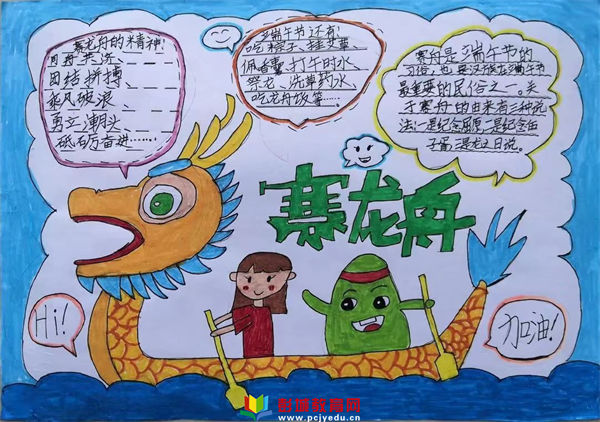 赛龙舟的精神:
同舟共济、
团结拼搏、
乘风破浪、
勇立潮头、
砥砺奋进……
端午节还有:
吃粽子、挂艾草、
佩香囊、打午时水、
祭龙、洗草药水、
吃龙舟饭等……
赛舟是端午节的
习俗,也是汉族端午节
最重要的民俗之一。关
于赛舟的由来有三种说
法:一是纪念屈原,二是纪念伍
子胥,是龙之日说。
赛龙舟
Hi!
加油!
彭城教育网
www.pcjyedu.cn